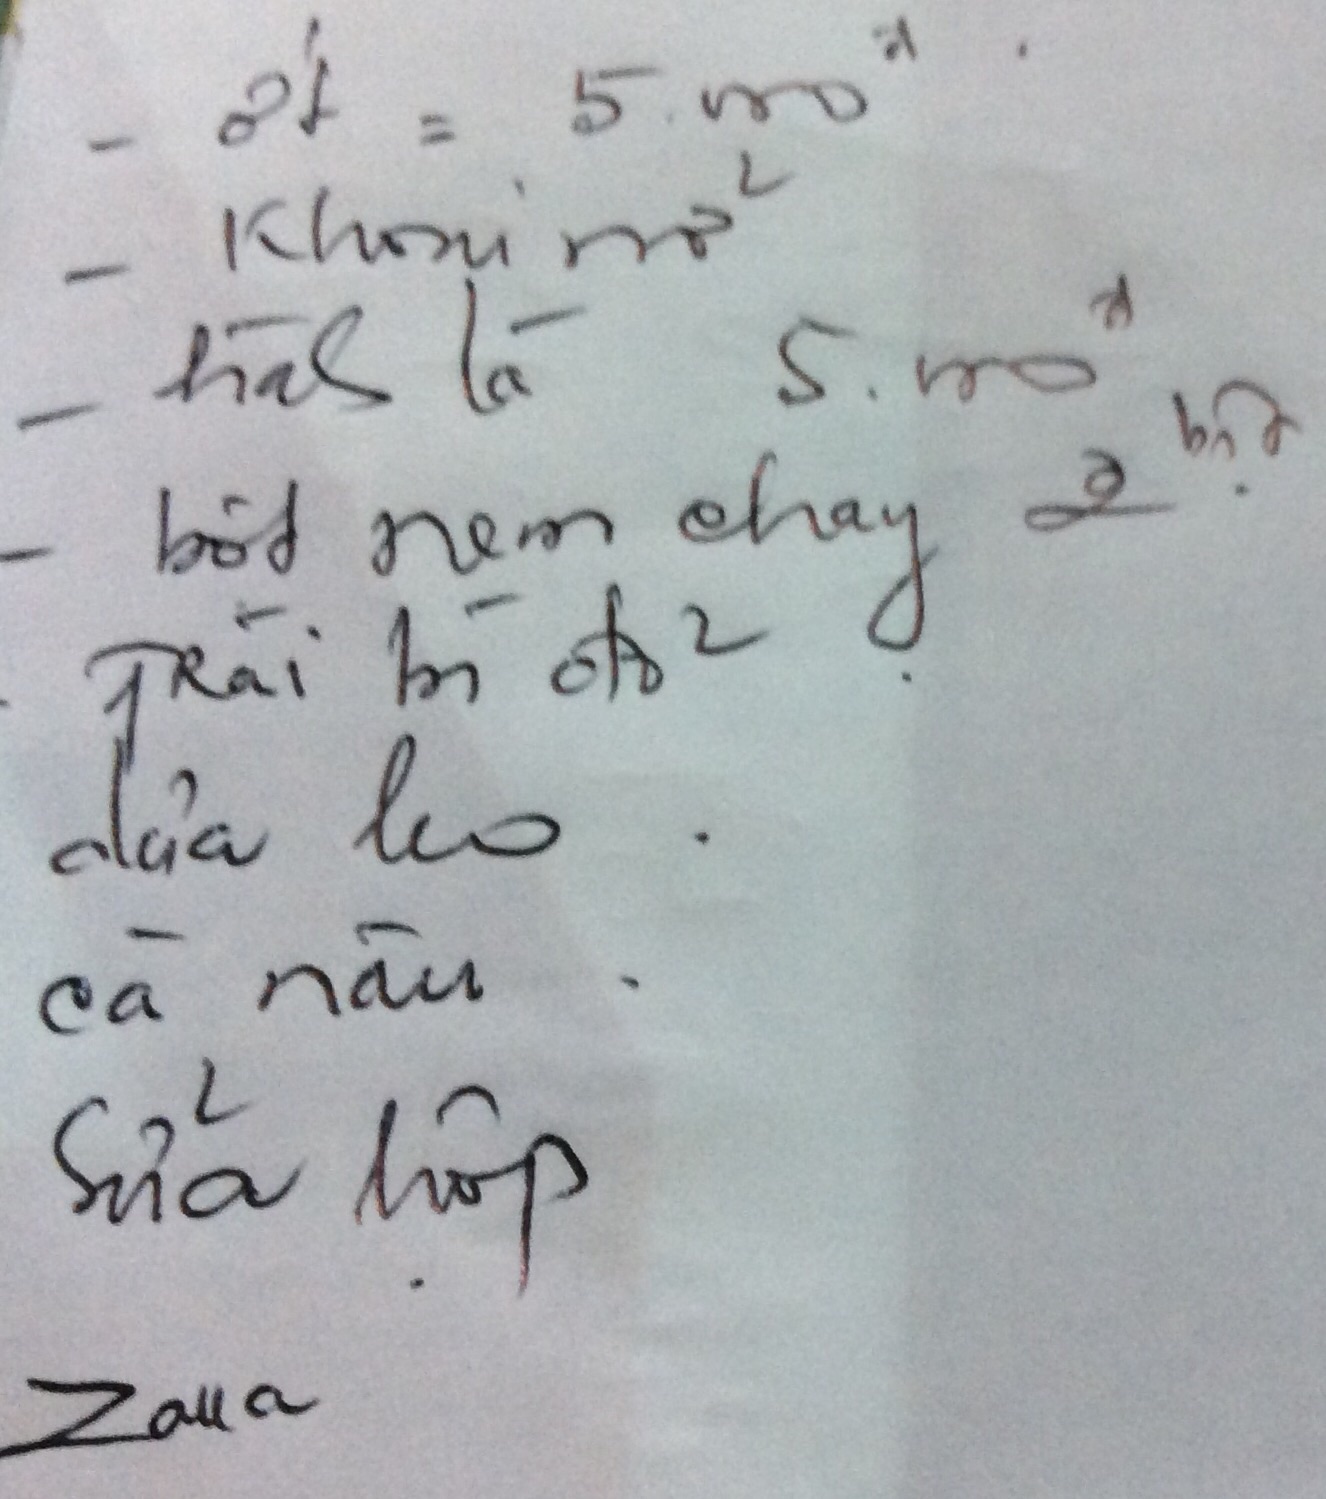 - ớt = 5.000đ
- Khoai mở
- hành lá 5.000đ
- bột nêm chay 2 bịch
Trái bí đỏ
dưa leo.
cà nâu.
Sửa hộp